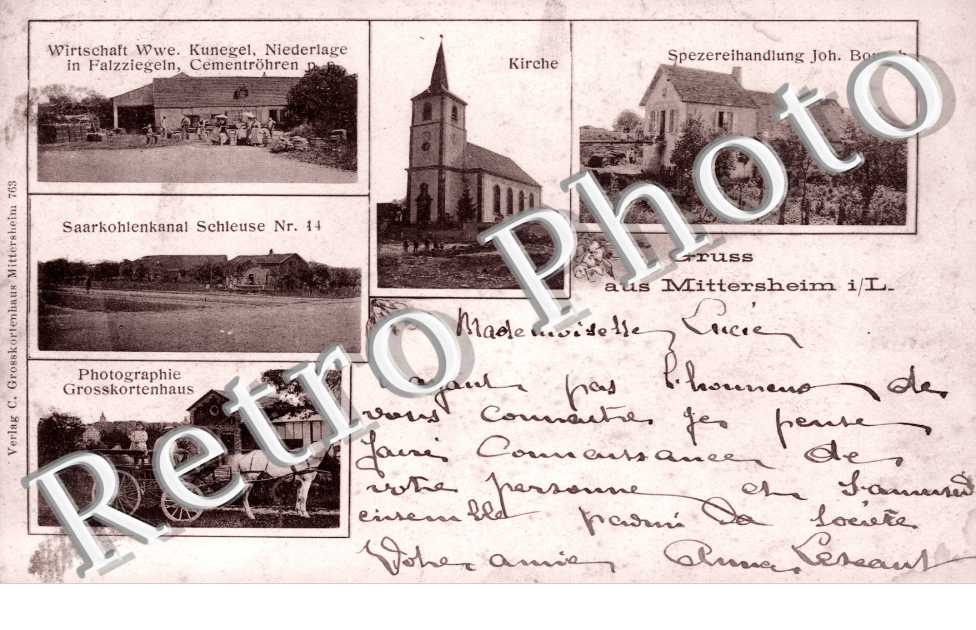 Wirtschaft Wwe. Kunegel, Niederlage
in Falzziegeln, Cementröhren
Kirche
Spezereihandlung Joh.
Saarkohlenkanal Schleuse Nr. 14
Gruss
aus Mittersheim i/L.
Photographie
Grosskortenhaus
Verlag C. Grosskortenhaus Mittersheim 763
Mademoiselle Lucie
pas l'honneur de
vous connaitre je pense
faire Connaissance de
votre personne et
ensemble parmi la Société
Votre amie Anna
Retro Photo